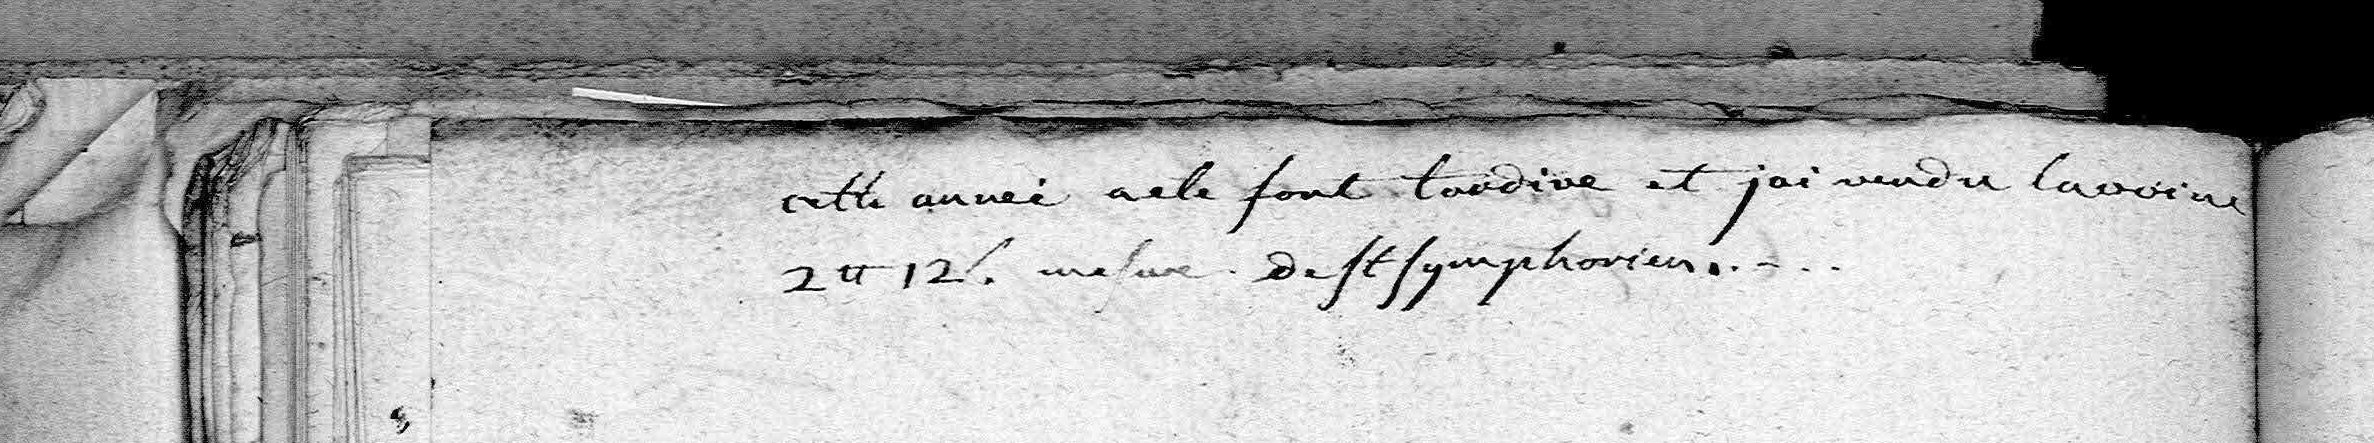 cette anneé aele sont tardive et jai vendu lavoine
2 tt 12 s. mesure. de st symphorien.....